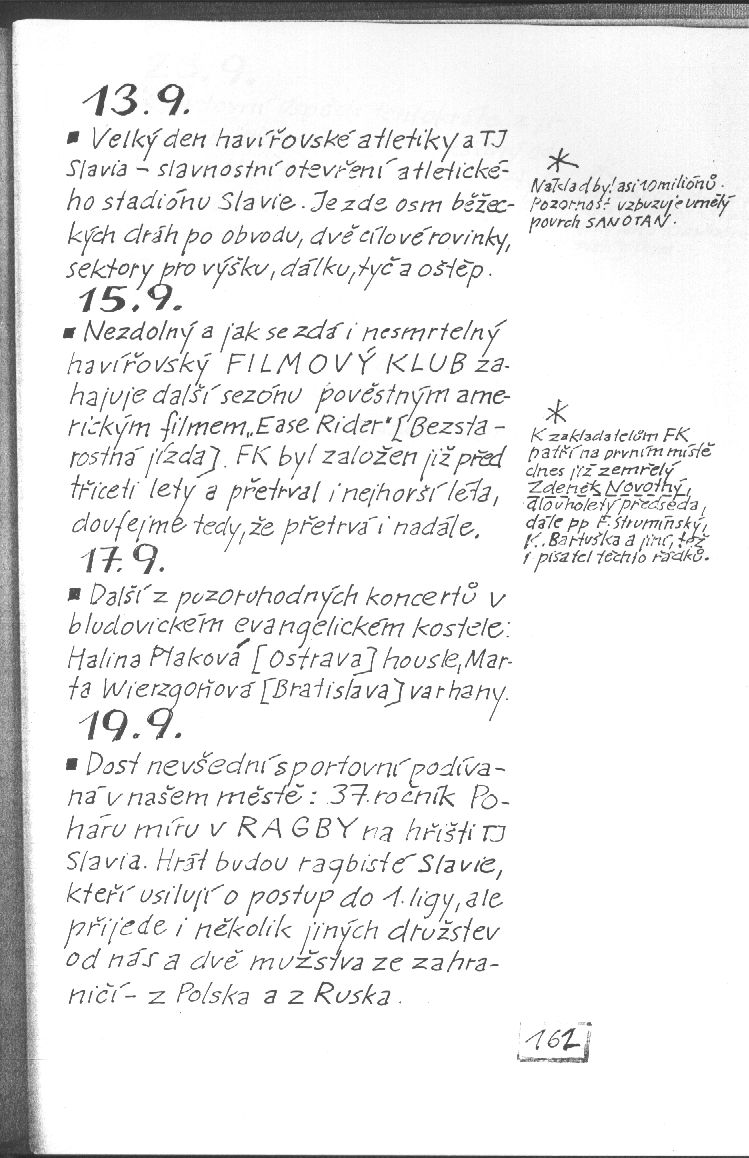 13.9.
▪ Velký den havířovské atletiky a TJ
Slavia – slavnostní otevření atletické-
ho stadiónu Slavie. Je zde osm běžec-
kých drah po obvodu, dvě cílové rovinky,
sektory pro výšku, dálku, tyč a oštěp.
*
Náklad byl asi 10 miliónů.
Pozornost vzbuzuje umělý
povrch SANOTAN.
15.9.
▪ Nezdolný a jak se zdá i nesmrtelný
havířovský FILMOVÝ KLUB za-
hajuje další sezónu pověstným ame-
rickým filmem „Ease Rider" [Bezsta-
rostná jízda]. FK byl založen již před
třiceti lety a přetrval i nejhorší léta,
doufejme tedy, že přetrvá i nadále.
*
K zakladatelům FK
patří na prvním místě
dnes již zemřelý
Zdeněk Novotný,
dlouholetý předseda,
dále pp F. Strumínský,
K. Bartuška a jiní, též
i pisatel těchto řádků.
17.9.
▪ Další z pozoruhodných koncertů v
bludovickém evangelickém kostele:
Halina Ptaková [Ostrava] housle, Mar-
ta Wierzgoňová [Bratislava] varhany.
19.9.
▪ Dost nevšední sportovní podíva-
ná v našem městě: 37. ročník Po-
háru míru v RAGBY na hřišti TJ
Slavia. Hrát budou ragbisté Slavie,
kteří usilují o postup do 1. ligy, ale
přijede i několik jiných družstev
od nás a dvě mužstva ze zahra-
ničí – z Polska a z Ruska.
162